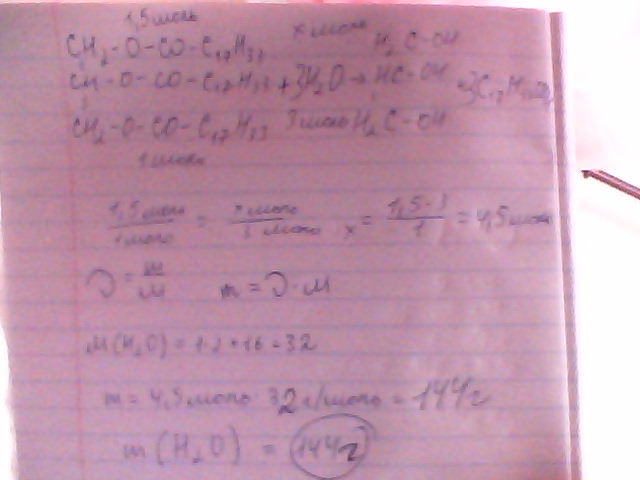 1,5 моль х моль H2C-OH
CH2-O-CO-C17H33
CH-O-CO-C17H33 + 3H2O → HC-OH + 3C17H33
CH2-O-CO-C17H33 3 моль H2C-OH
1 моль
1,5 моль / 1 моль = х моль / 3 моль х = 1,5·3 / 1 = 4,5 моль
ν = m/M m = ν·M
M(H2O) = 1·2+16=32
m = 4,5 моль · 32 г/моль = 144г
m(H2O) = 144г